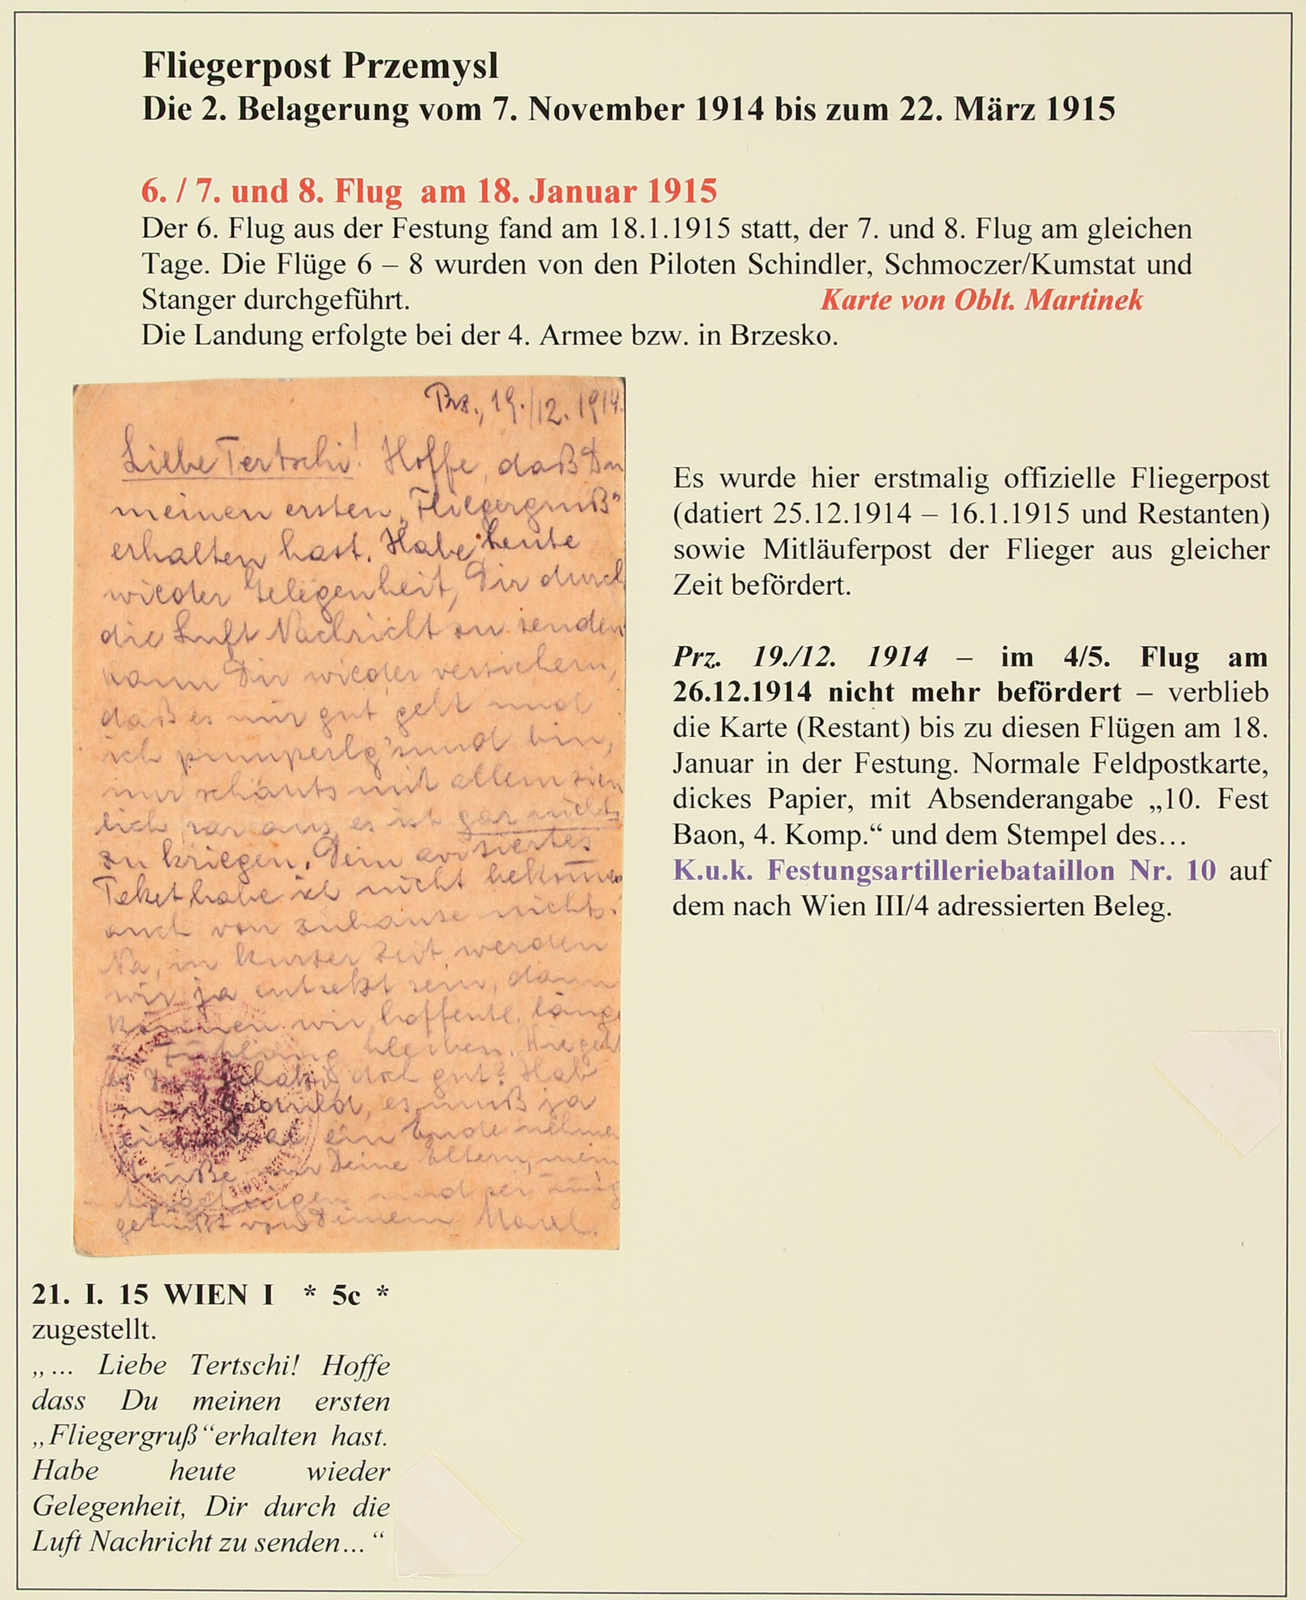 Fliegerpost Przemysl
Die 2. Belagerung vom 7. November 1914 bis zum 22. März 1915
6. / 7. und 8. Flug am 18. Januar 1915
Der 6. Flug aus der Festung fand am 18.1.1915 statt, der 7. und 8. Flug am gleichen
Tage. Die Flüge 6 – 8 wurden von den Piloten Schindler, Schmoczer/Kumstat und
Stanger durchgeführt. Karte von Oblt. Martinek
Die Landung erfolgte bei der 4. Armee bzw. in Brzesko.
19./12. 1914.
Liebe Tertschi! Hoffe, daß Du
meinen ersten „Fliegergruß"
erhalten hast. Habe heute
wieder Gelegenheit, Dir durch
die Luft Nachricht zu senden
kann Dir wieder versichern,
daß es mir gut geht und
ich pumperlg'sund bin,
nur schauts mit allem ziem
lich aus, es ist gar nichts
zu kriegen. Dein avisiertes
Paket habe ich nicht bekommen
auch von zuhause nichts.
Na, in kurzer Zeit werden
wir ja entsetzt sein, dann
können wir hoffentl. länger
in Fühlung bleiben. Wie geht
es Dir, Schatzi, doch gut? Hab
nur Geduld, es muß ja
einmal ein Ende nehmen
Grüße mir Deine Eltern, mein
und sei
geküßt von Deinem
Es wurde hier erstmalig offizielle Fliegerpost
(datiert 25.12.1914 – 16.1.1915 und Restanten)
sowie Mitläuferpost der Flieger aus gleicher
Zeit befördert.
Prz. 19./12. 1914 – im 4/5. Flug am
26.12.1914 nicht mehr befördert – verblieb
die Karte (Restant) bis zu diesen Flügen am 18.
Januar in der Festung. Normale Feldpostkarte,
dickes Papier, mit Absenderangabe „10. Fest
Baon, 4. Komp.“ und dem Stempel des…
K.u.k. Festungsartilleriebataillon Nr. 10 auf
dem nach Wien III/4 adressierten Beleg.
21. I. 15 WIEN I * 5c *
zugestellt.
„… Liebe Tertschi! Hoffe
dass Du meinen ersten
„Fliegergruß“erhalten hast.
Habe heute wieder
Gelegenheit, Dir durch die
Luft Nachricht zu senden…“